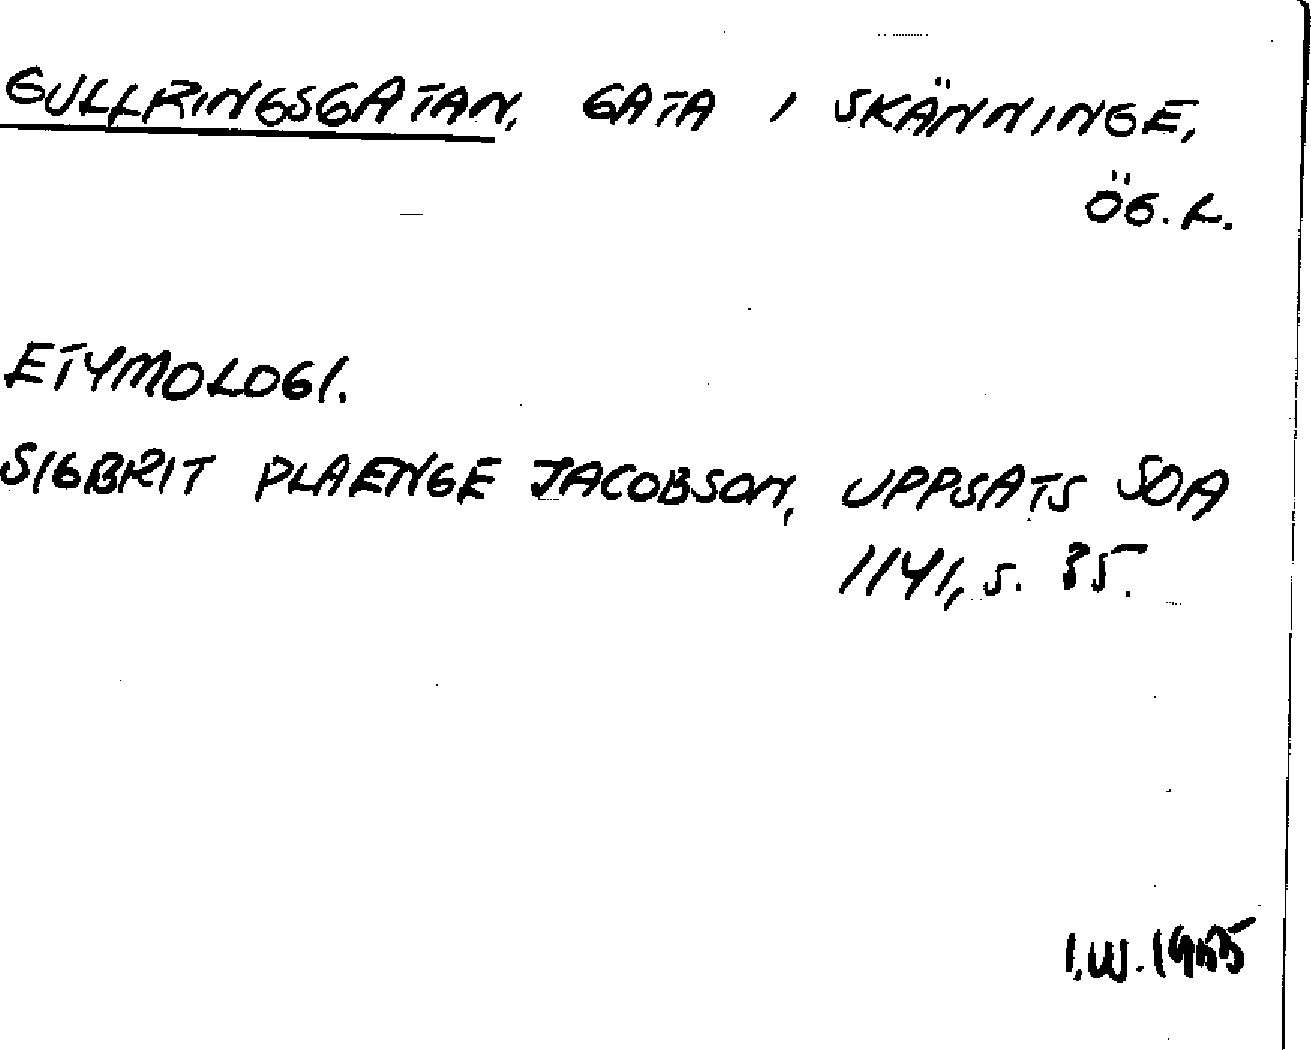 GULLRINGSGATAN, GATA I SKÄNNINGE,
ÖG. L.
ETYMOLOGI.
SIGBRIT PLAENGE JACOBSON, UPPSATS SOA
1141, S. 35.
I.W. 1955